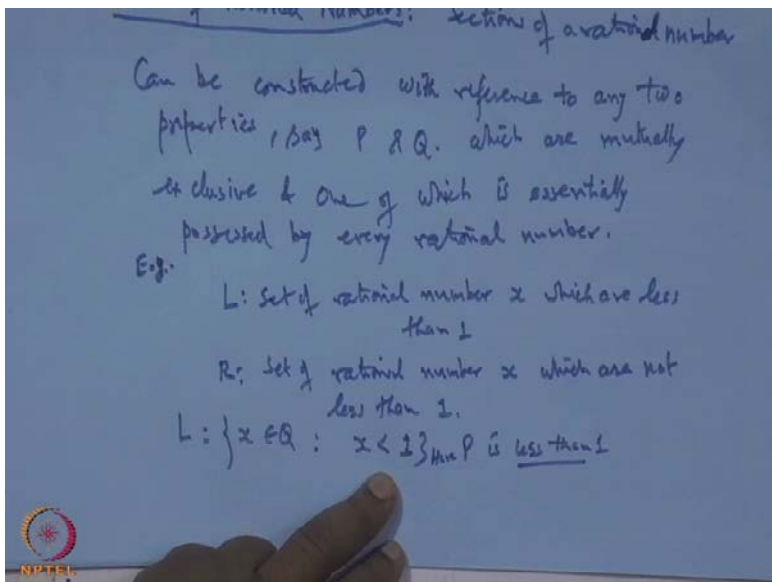 of Numbers: Sections of a rational number
Can be constructed with reference to any two
properties, say P & Q. which are mutually
exclusive & one of which is essentially
possessed by every rational number.
E.g.
L: Set of rational number x which are less
than 1
R: Set of rational number x which are not
less than 1.
L: {x ∈ Q : x < 1} Here P is less than 1
NPTEL